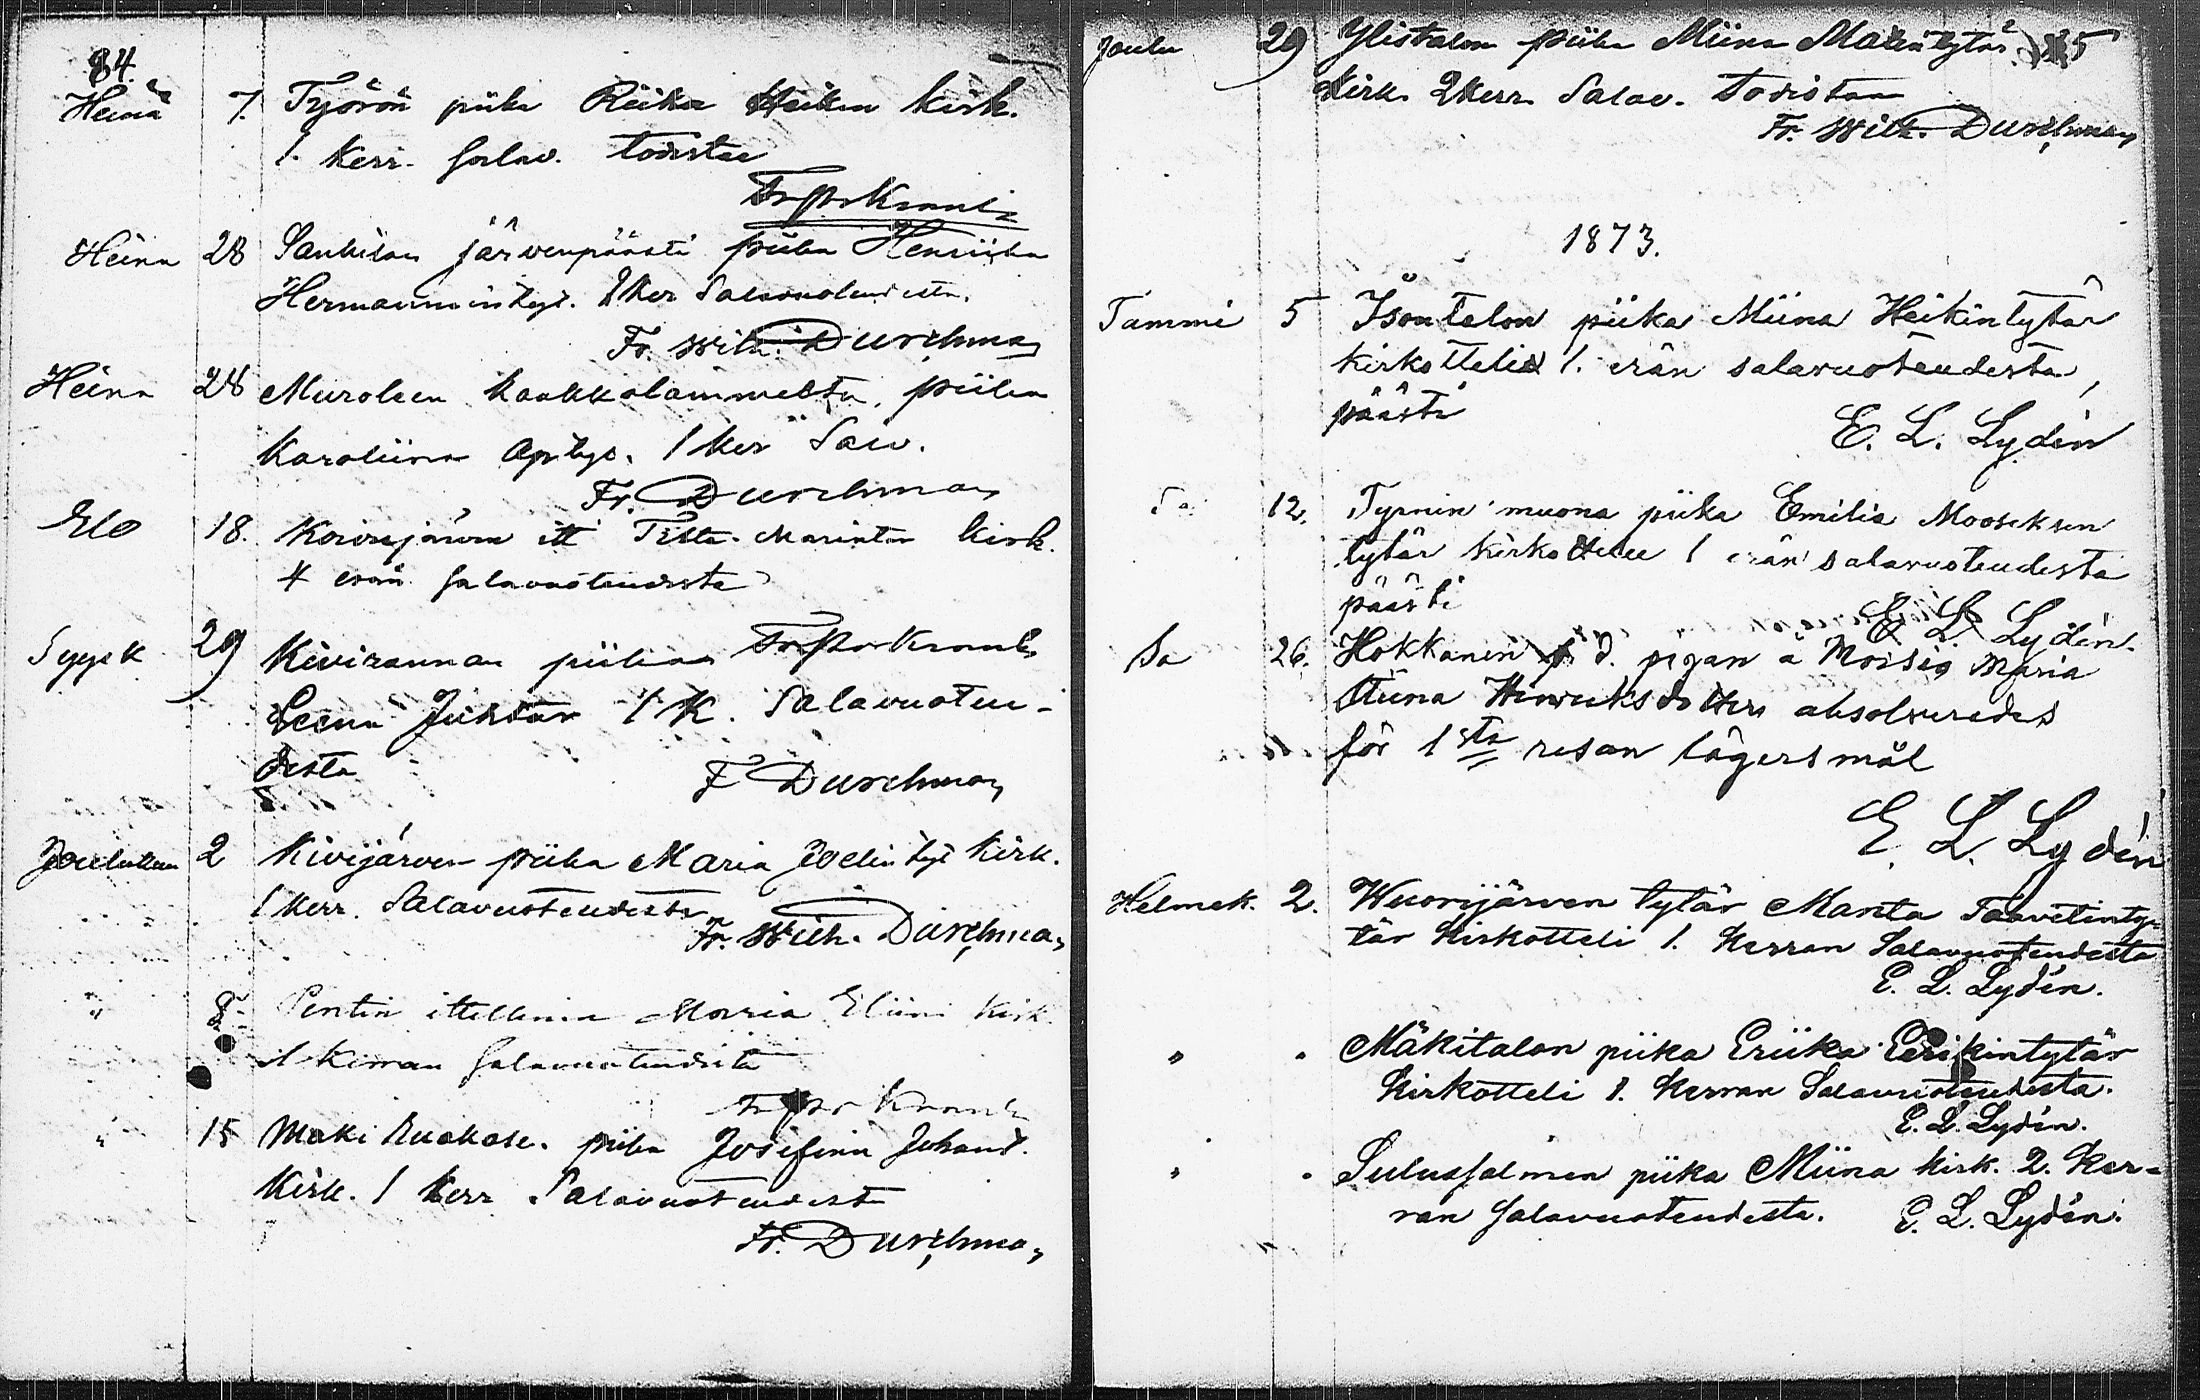 84.
Heinä 7. Työrön piika Riika Heikin kirk.
1. kerr. salav. todistaa
Fr. Kranck
Heinä 28 järvenpäästä piika Henriika
Hermannintyt. 1 ker Salavuoteudesta.
Fr. Wilh. Durchman
Heinä 28 Muroleen kaakkolammelta, piika
Karoliina Aptyt. 1 ker Salv.
Fr. Durchman
Elo 18. Koirusjärven itt Marintr kirk.
4 erän salavuoteudesta
Fr. Kranck
Syysk 29 Kivirannan piikaa
Leena Juhotär 1 K. Salavuoteu-
desta
F Durchman
Joulukuu 2 Kivijärven piika Maria Joelintyt kirk.
1 kerr. Salavuoteudesta
Fr. Wilh. Durchman
" 8 Pentin itellinen Maria Eliini kirk.
1 kerran salavuoteudesta
Fr. Kranck
" 15 Mäki piika Josefina Juhant.
Kirk. 1 kerr Salavuoteudesta
Fr. Durchman
85
Joulu 29 Ylistalon piika Miina Matintytär
kirk. 2 kerr. Salav. todistaa
Fr. Wilh. Durchman
1873.
Tammi 5 Isontalon piika Miina Heikintytär
kirkotteliⱥ 1. erän salavuoteudesta,
päästi
E. L. Lydén
Sa 12. Tyrnin muona piika Emilia Mooseksen
tytär kirkottelee 1 erän salavuoteudesta
päästi
E. L. Lydén.
Sa 26. Hokkanen f. d. pigan å Moisio Maria
Stiina Henriksdotter absolverades
för 1sta resan lägersmål
E. L. Lydén
Helmek. 2. Wuorijärven tytär Manta Taavetinty-
tär kirkotteli 1. kerran Salavuoteudesta
E. L. Lydén.
" " Mäkitalon piika Eriika Eerikintytär
kirkotteli 1. kerran Salavuoteudesta.
E. L. Lydén.
" " Sulussalmen piika Miina kirk. 2. ker-
ran salavuoteudesta. E. L. Lydén.